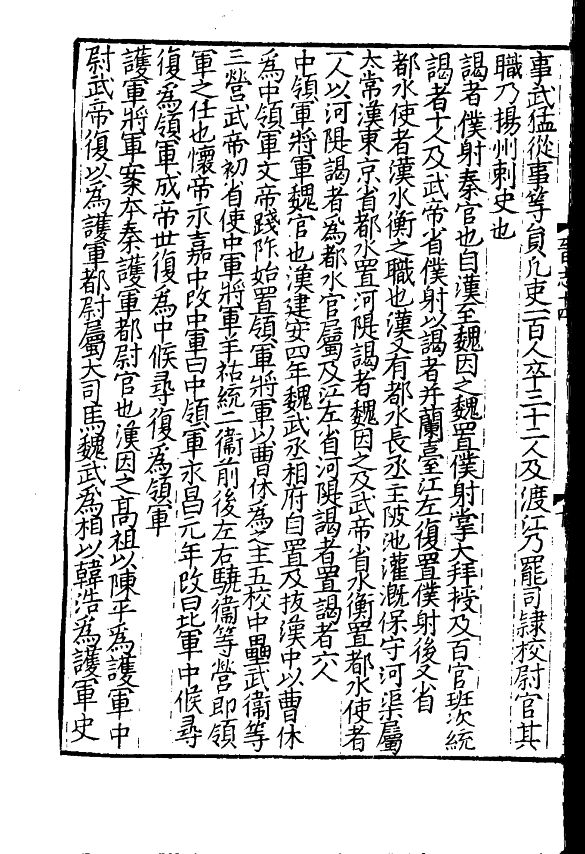 事武猛從事等員凡吏一百人卒三十二人及渡江乃罷司隷校尉官其
職乃揚州刺史也
謁者僕射秦官也自漢至魏因之魏置僕射掌大拜授及百官班次統
謁者十人及武帝省僕射以謁者并蘭臺江左復置僕射後又省
都水使者漢水衡之職也漢又有都水長丞主陂池灌溉保守河渠屬
太常漢東京省都水置河隄謁者魏因之及武帝省水衡置都水使者
一人以河隄謁者爲都水官屬及江左省河隄謁者置謁者六人
中領軍將軍魏官也漢建安四年魏武丞相府自置及拔漢中以曹休
爲中領軍文帝踐阼始置領軍將軍以曹休為之主五校中壘武衞等
三營武帝初省使中軍將軍羊祜統二衞前後左右驍衞等營即領
軍之任也懷帝永嘉中改中軍曰中領軍永昌元年改曰北軍中候尋
復爲領軍成帝世復爲中候尋復爲領軍
護軍將軍案本秦護軍都尉官也漢因之高祖以陳平爲護軍中
尉武帝復以為護軍都尉屬大司馬魏武為相以韓浩爲護軍史